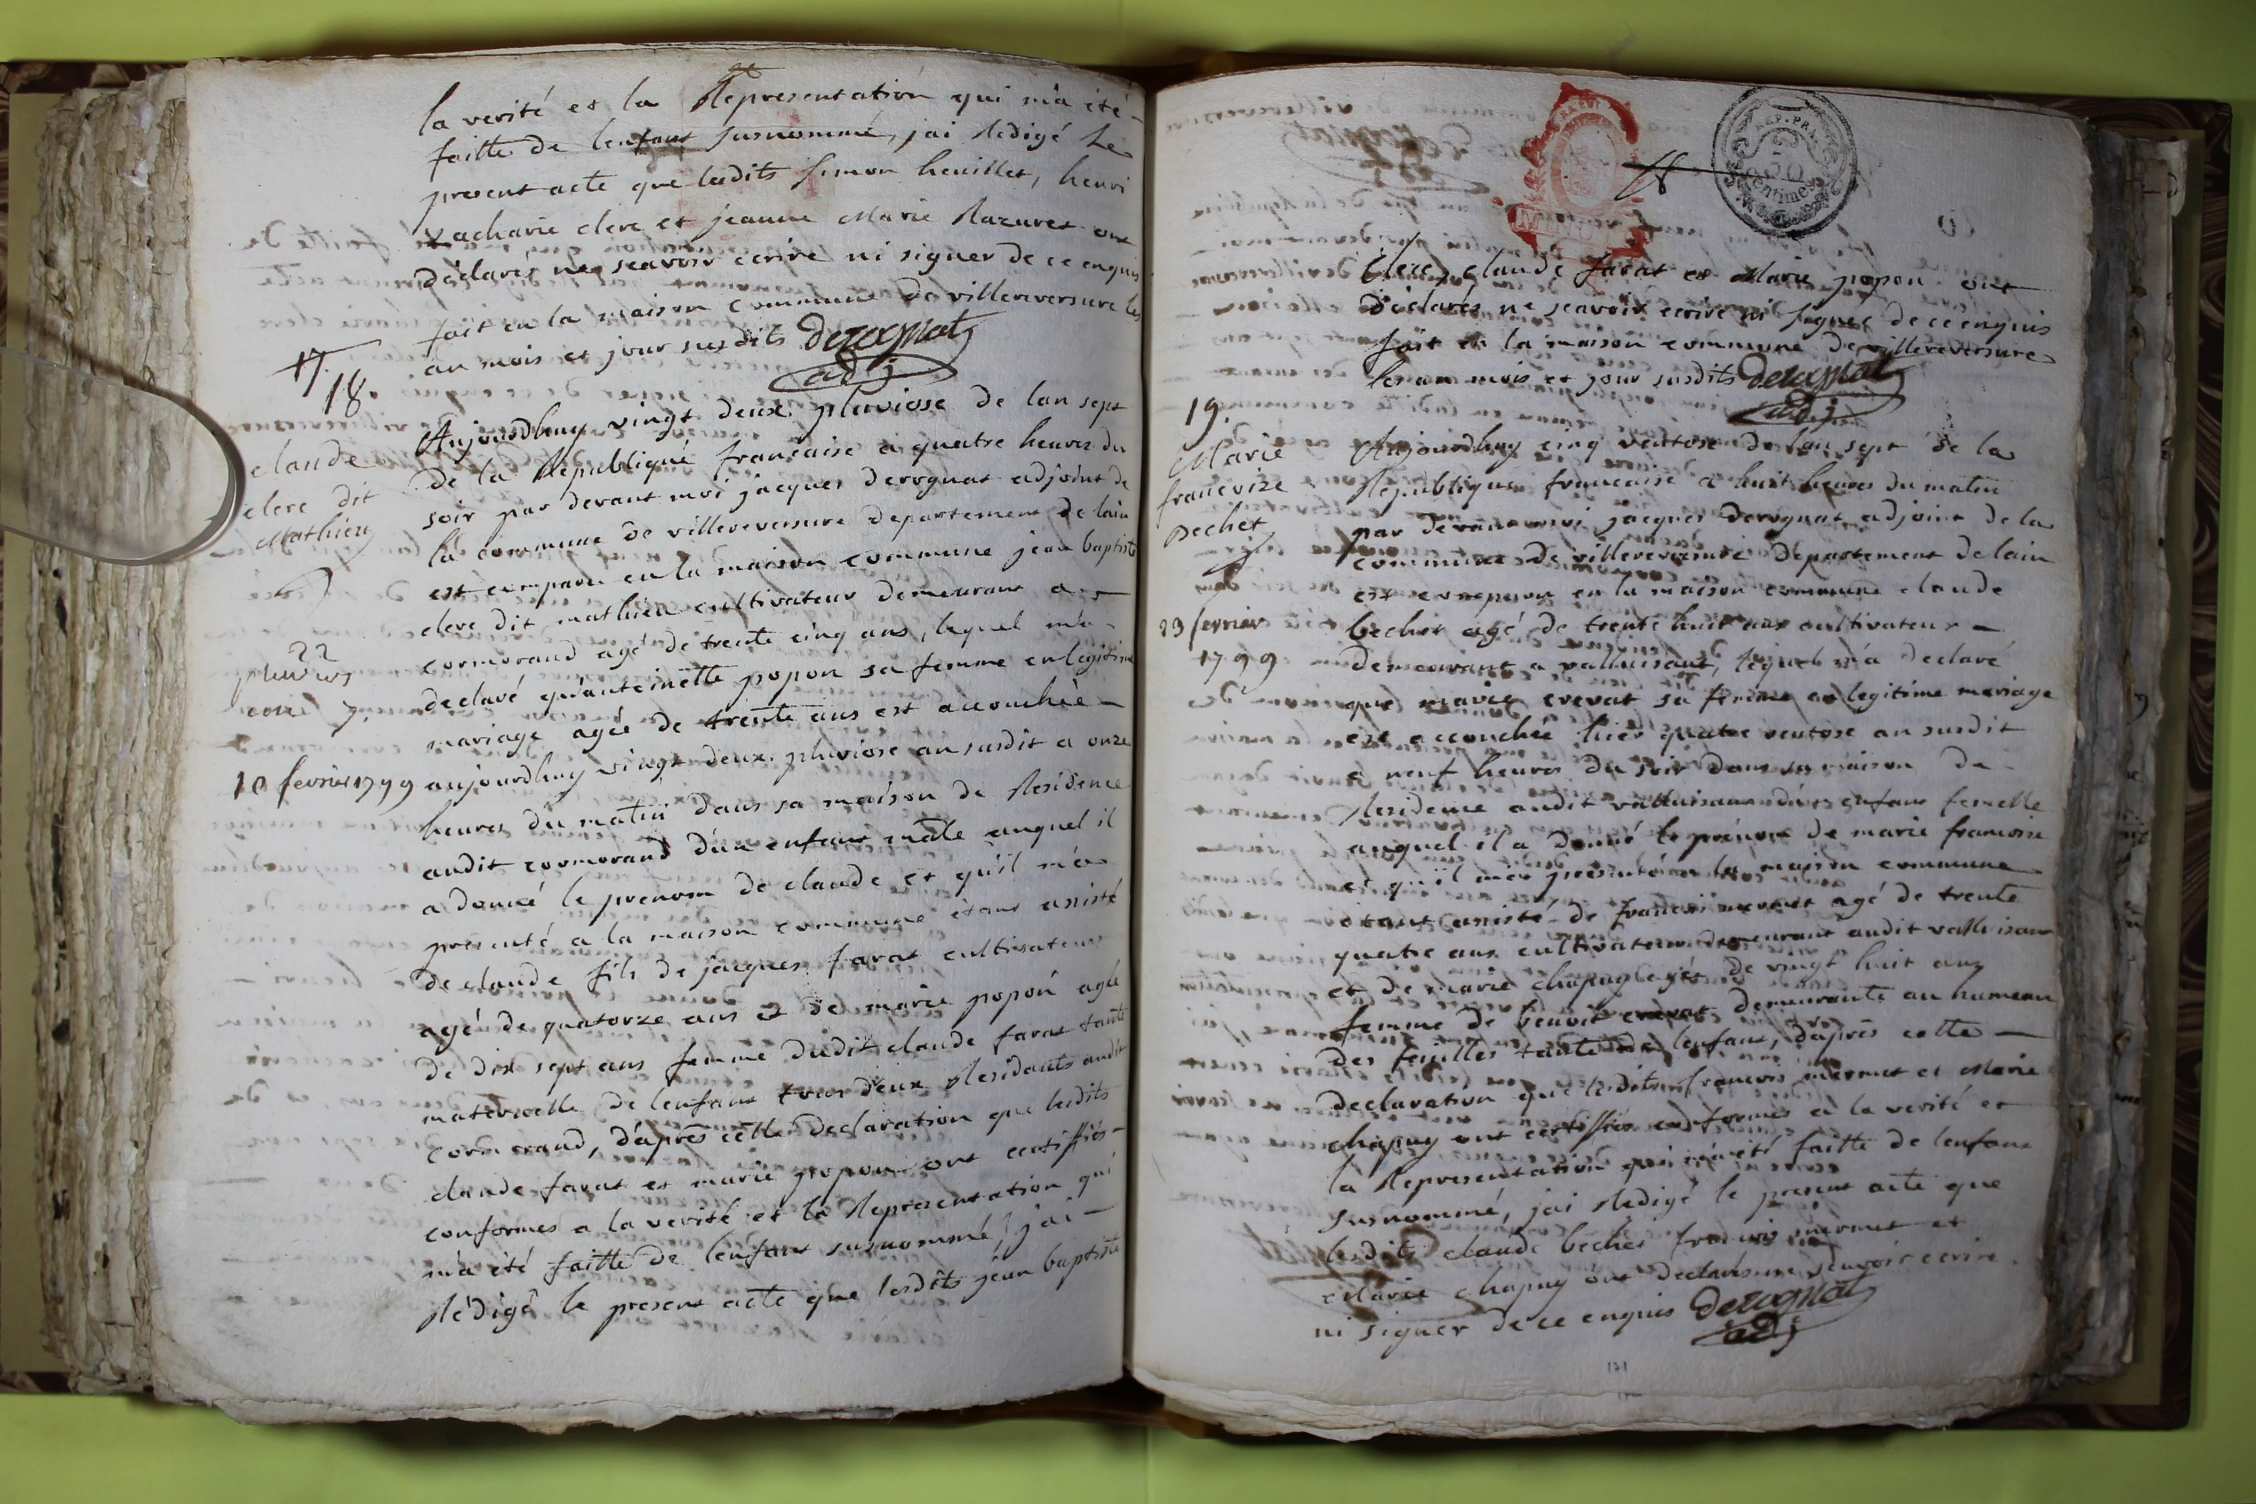 la verité et la Representation qui m'a été
faitte de lenfant susnommé, jai Redigé Le
present acte que lesdits simon heuillet, henri
zacharie clerc et jeanne Marie Nazaret ont
déclarés ne sçavoir ecrire ni signer de ce enquis
fait en la maison commune de villereversure les
an mois et jour susdits derognat
adj
17.
18.
claude
clerc dit
Mathieu
22
pluvios
an 7.
10 fevrier 1799
Aujourdhuy vingt deux pluviose de lan sept
de la Republique francaise a quatre heures du
soir par devant moi jacques derognat adjoint de
la commune de villereversure departement de lain
est comparu en la maison commune jean baptiste
clerc dit mathieu cultivateur demeurant a
cormorand agé de trente cinq ans, lequel m'a
declaré qu'antoinette popon sa femme en legitime
mariage agée de trente ans est accouchée
aujourdhuy vingt deux pluviose an susdit a onze
heures du matin dans sa maison de Residence
audit cormorand d'un enfant mâle auquel il
a donné le prenom de claude et qu'il m'a
presenté a la maison commune étant assisté
de claude fils de jacques farat cultivateur
agé de quatorze ans et de marie popon agée
de dix sept ans femme dudit claude farat tante
maternelle de lenfant tous deux Residants audit
cormorand, d'après cette declaration que lesdits
claude farat et marie popon ont certiffiés
conformes a la verité et la Representation qui
m'a été faitte de lenfant susnommé, j'ai
Rédigé le present acte que lesdits jean baptiste
REP. FRA.
50
centimes
clerc, claude farat et Marie popon ont
déclarés ne sçavoir ecrire ni signer de ce enquis
fait en la maison commune de villereversure
les an mois et jour susdits derognat
adj
19.
Marie
francoise
Bechet
23 fevrier
1799
Aujourdhuy cinq ventose de lan sept de la
Republique francaise a huit heures du matin
par devant moi jacques derognat adjoint de la
commune de villereversure departement de lain
est comparu en la maison commune claude
bechet agé de trente huit ans cultivateur
demeurant a valluisant, lequel m'a declaré
que marie crevat sa femme en legitime mariage
est accouchée hier quatre ventose an susdit
a neuf heures du soir dans sa maison de
Residence audit valluisant d'un enfant femelle
auquel il a donné le prénom de marie francoise
et qu'il m'a presenté a la maison commune
étant assisté de francois mermet agé de trente
quatre ans cultivateur demeurant audit valluisant
et de marie chapuy agée de vingt huit ans
femme de benoit crevat demeurante au hameau
des feuilles tante de lenfant, d'après cette
declaration que lesdits francois mermet et Marie
chapuy ont certiffiés conformes a la verité et
la Representation qui m'a été faitte de lenfant
susnommé, j'ai Redigé le present acte que
lesdits claude bechet francois mermet et
Marie chapuy ont declarés ne sçavoir ecrire
ni signer de ce enquis derognat
adj
171